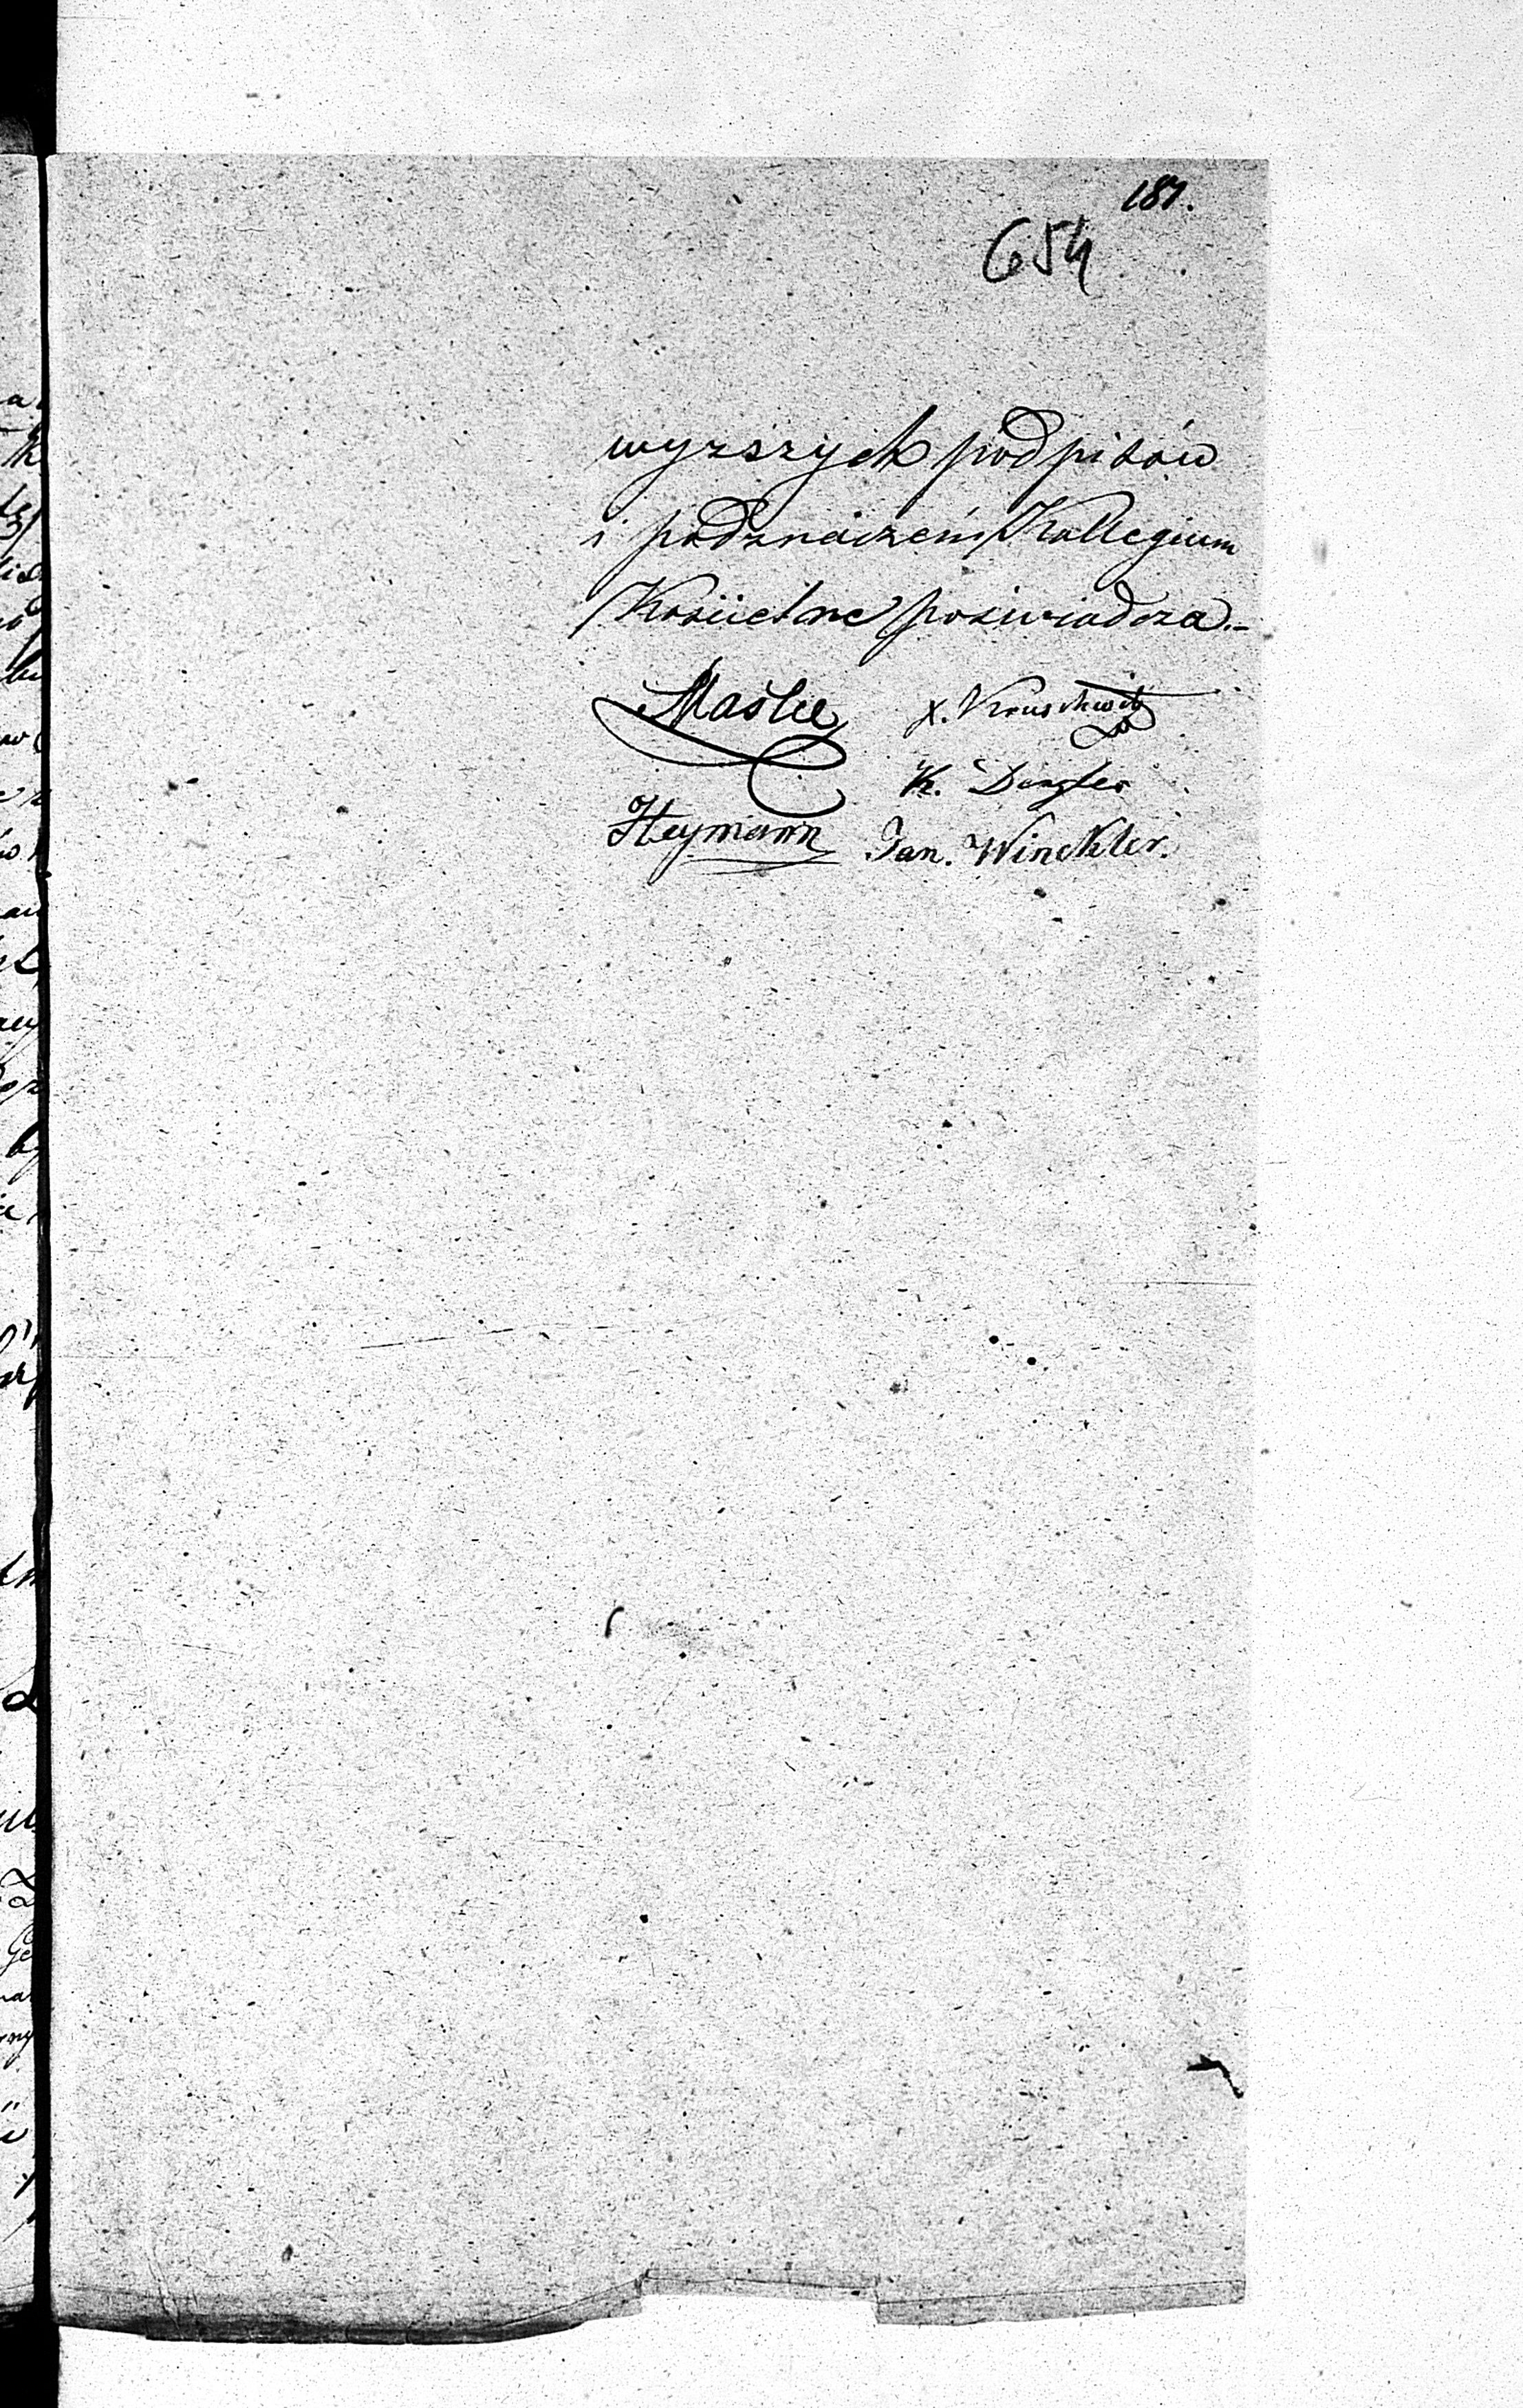 187.
654
wyzszych podpisów
i podznaczeń Kollegium
Kościelne poświadcza.–
Maske X. Kruschwitz
K. Dengler
Heymann Jan. Winckler.